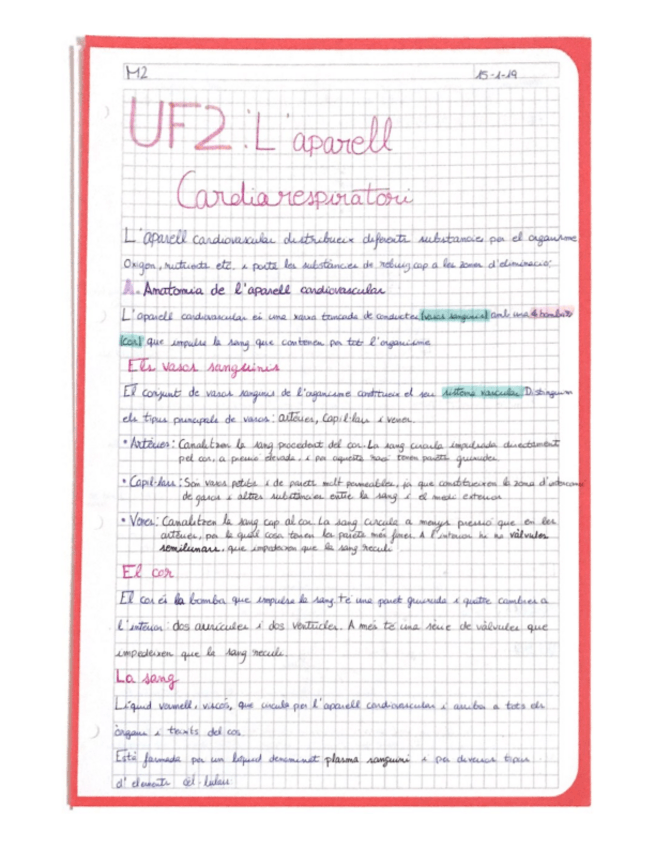 M2 15-1-19
UF2: L'aparell
Cardiarespiratori
L'aparell cardiovascular distribueix diferents substàncies per el organisme
Oxigen, nutrients etc. i porta les substàncies de rebuig cap a les zones d'eliminació.
A. Anatomia de l'aparell cardiovascular
L'aparell cardiovascular és una xarxa tancada de conductes (vasos sanguinis) amb una bomba
(cor) que impulsa la sang que contenen per tot l'organisme
Els vasos sanguinis
El conjunt de vasos sanguinis de l'organisme constitueix el seu sistema vascular. Distingim
els tipus principals de vasos: artèries, capil·lars i venes.
• Artèries: Canalitzen la sang procedent del cor. La sang circula impulsada directament
pel cor, a pressió elevada, i per aquesta raó tenen parets gruixudes.
• Capil·lars: Són vasos petits i de parets molt permeables, ja que constitueixen la zona d'intercanvi
de gasos i altres substàncies entre la sang i el medi exterior
• Venes: Canalitzen la sang cap al cor. La sang circula a menys pressió que en les
artèries, per la qual cosa tenen les parets més fines. A l'interior hi ha vàlvules
semilunars, que impedeixen que la sang reculi.
El cor
El cor és la bomba que impulsa la sang té una paret gruixuda i quatre cambres a
l'interior: dos aurícules i dos ventricles. A més té una sèrie de vàlvules que
impedeixen que la sang reculi.
La sang
Líquid vermell, viscós, que circula per l'aparell cardiovascular i arriba a tots els
òrgans i teixits del cos.
Està formada per un líquid denominat plasma sanguini i per diversos tipus
d'elements cèl·lulars